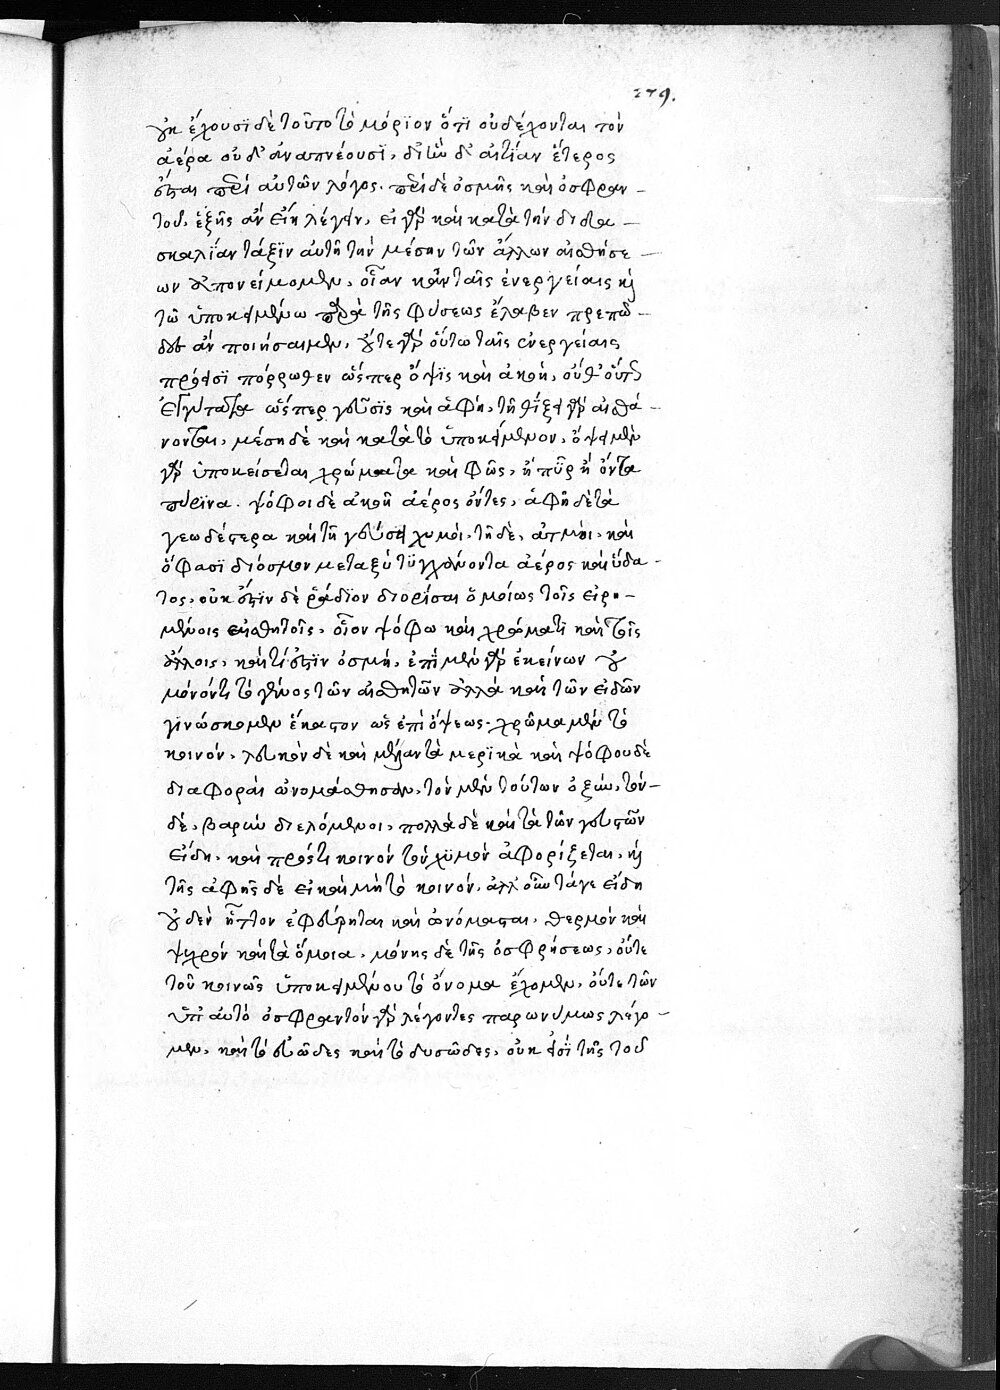 279.
οὐκ ἔχουσι δὲ τοῦτο τὸ μόριον ὅτι οὐ δέχονται τὸν
ἀέρα οὐδ' ἀναπνέουσι, δι' ἣν δ' αἰτίαν ἕτερος
ἔσται περὶ αὐτῶν λόγος. περὶ δὲ ὀσμῆς καὶ ὀσφραν-
τοῦ, ἑξῆς ἂν εἴη λέγειν, εἰ γὰρ καὶ κατὰ τὴν διδα-
σκαλίαν τάξιν αὐτῆ τὴν μέσην τῶν ἄλλων αἰσθήσε-
ων ἀπονείμομεν, οἵαν κἀν ταῖς ἐνεργείαις καὶ
τῶ ὑποκειμένω παρὰ τῆς φύσεως ἔλαβεν πρεπόν-
τως ἂν ποιήσαιμεν, οὔτε γὰρ οὕτω ταῖς ἐνεργείαις
πρόεισι πόρρωθεν ὥσπερ ὄψις καὶ ἀκοὴ, οὔθ' οὕτως
ἐγγυτάτω ὥσπερ γεῦσις καὶ ἁφὴ, τῆ θίξει γὰρ αἰσθά-
νονται, μέση δὲ καὶ κατὰ τὸ ὑποκείμενον, ὄψει μὲν
γὰρ ὑποκείσεται χρώματα καὶ φῶς, ἢ πῦρ ἢ ὄντα
πύρινα. ψόφοι δὲ ἀκοῆ ἀέρος ὄντες, ἁφῆ δὲ τὰ
γεωδέστερα καὶ τῆ γεύσει χυμοὶ, τῆ δὲ, ἀτμοὶ, καὶ
ὅ φασι δίοσμον μεταξὺ τυγχάνοντα ἀέρος καὶ ὕδα-
τος, οὐκ ἔστιν δὲ ῥάδιον διορίσαι ὁμοίως τοῖς εἰρη-
μένοις αἰσθητοῖς, οἷον ψόφω καὶ χρώματι καὶ τοῖς
ἄλλοις, καὶ τί ἐστιν ὀσμὴ, ἐπὶ μὲν γὰρ ἐκείνων οὐ
μόνόν τι τὸ γένος τῶν αἰσθητῶν ἀλλὰ καὶ τῶν εἰδῶν
γινώσκομεν ἕκαστον ὡς ἐπὶ ὄψεως. χρῶμα μὲν τὸ
κοινόν, λευκὸν δὲ καὶ μέλαν τὰ μερικὰ καὶ ψόφου δὲ
διαφοραὶ ὠνομάσθησαν, τὸν μὲν τούτων ὀξὺν, τὸν-
δὲ, βαρὺν διελόμενοι, πολλὰ δὲ καὶ τὰ τῶν γευστῶν
εἴδη, καὶ πρός τι κοινόν τὸν χυμὸν ἀφορίζεται, καὶ
τῆς ἁφῆς δὲ εἰ καὶ μὴ τὸ κοινόν, ἀλλ' οὖν τάγε εἴδη
οὐδὲν ἧττον ἐφεύρηται καὶ ὠνόμασται, θερμὸν καὶ
ψυχρόν καὶ τὰ ὅμοια, μόνης δὲ τῆς ὀσφρήσεως, οὔτε
τοῦ κοινῶς ὑποκειμένου τὸ ὄνομα ἔχομεν, οὔτε τῶν
ὑπ' αὐτό ὀσφραντόν γὰρ λέγοντες παρωνύμως λέγο-
μεν, καὶ τὸ εὐῶδες καὶ τὸ δυσῶδες, οὐκ εἰσὶ τῆς τοῦ